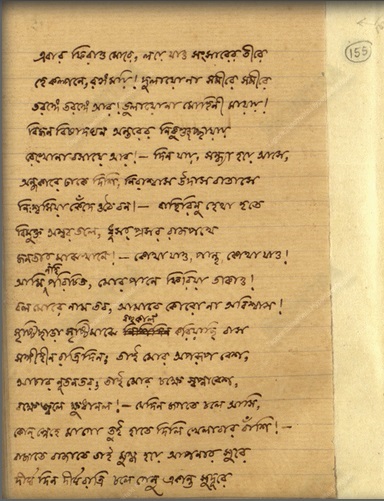 এবার ফিরাও মোরে, লয়ে যাও সংসারের তীরে
হে কল্পনে, রঙ্গময়ি! দুলায়োনা সমীরে সমীরে
তরঙ্গে তরঙ্গে আর! ভুলায়োনা মোহিনী মায়ায়!
বিজন বিষাদঘন অন্তরের নিকুঞ্জচ্ছায়ায়
রেখোনা বসায়ে আর! — দিন যায়, সন্ধ্যা হয়ে আসে,
অন্ধকারে ঢাকে দিশি, নিরাশ্বাস উদাস বাতাসে
নিঃশ্বসিয়া কেঁদে ওঠে বন! — বাহিরিনু হেথা হতে
বিমুক্ত অম্বর তলে, ধূসর প্রসর রাজপথে
জনতার মাঝখানে! — কোথা যাও, পান্থ, কোথা যাও!
আমি নহি পরিচিত, মোর পানে ফিরিয়া তাকাও!
বল মোরে নাম তব, আমারে কোরোনা অবিশ্বাস!
সৃষ্টিছাড়া সৃষ্টিমাঝে বহুকাল করিয়াছি বাস
সঙ্গীহীন রাত্রিদিন; তাই মোর অপরূপ বেশ,
আচার নূতনতর; তাই মোর চক্ষে স্বপ্নাবেশ,
বক্ষে জ্বলে ক্ষুধানল! — যেদিন জগতে চলে আসি,
কোন্ স্নেহে মাগো তুই হাতে দিলি খেলাবার বাঁশি! —
বাজাতে বাজাতে তাই মুগ্ধ হয়ে আপনার সুরে
দীর্ঘ দিন দীর্ঘ রাত্রি চলে গেনু একান্ত সুদূরে
155